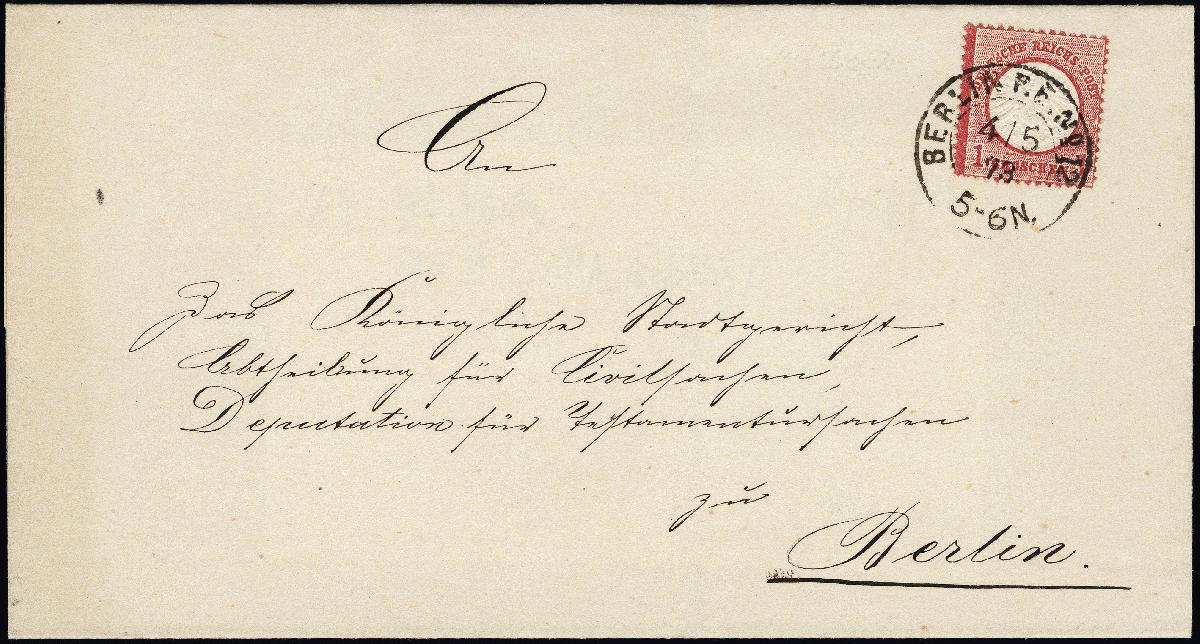 SCHE REICHS-POST
1
GROSCHEN
BERLIN P.E. No 12
4/5
73
5-6N.
An
Das Königliche Stadtgericht,
Abtheilung für Civilsachen,
Deputation für Testamentursachen
zu
Berlin.